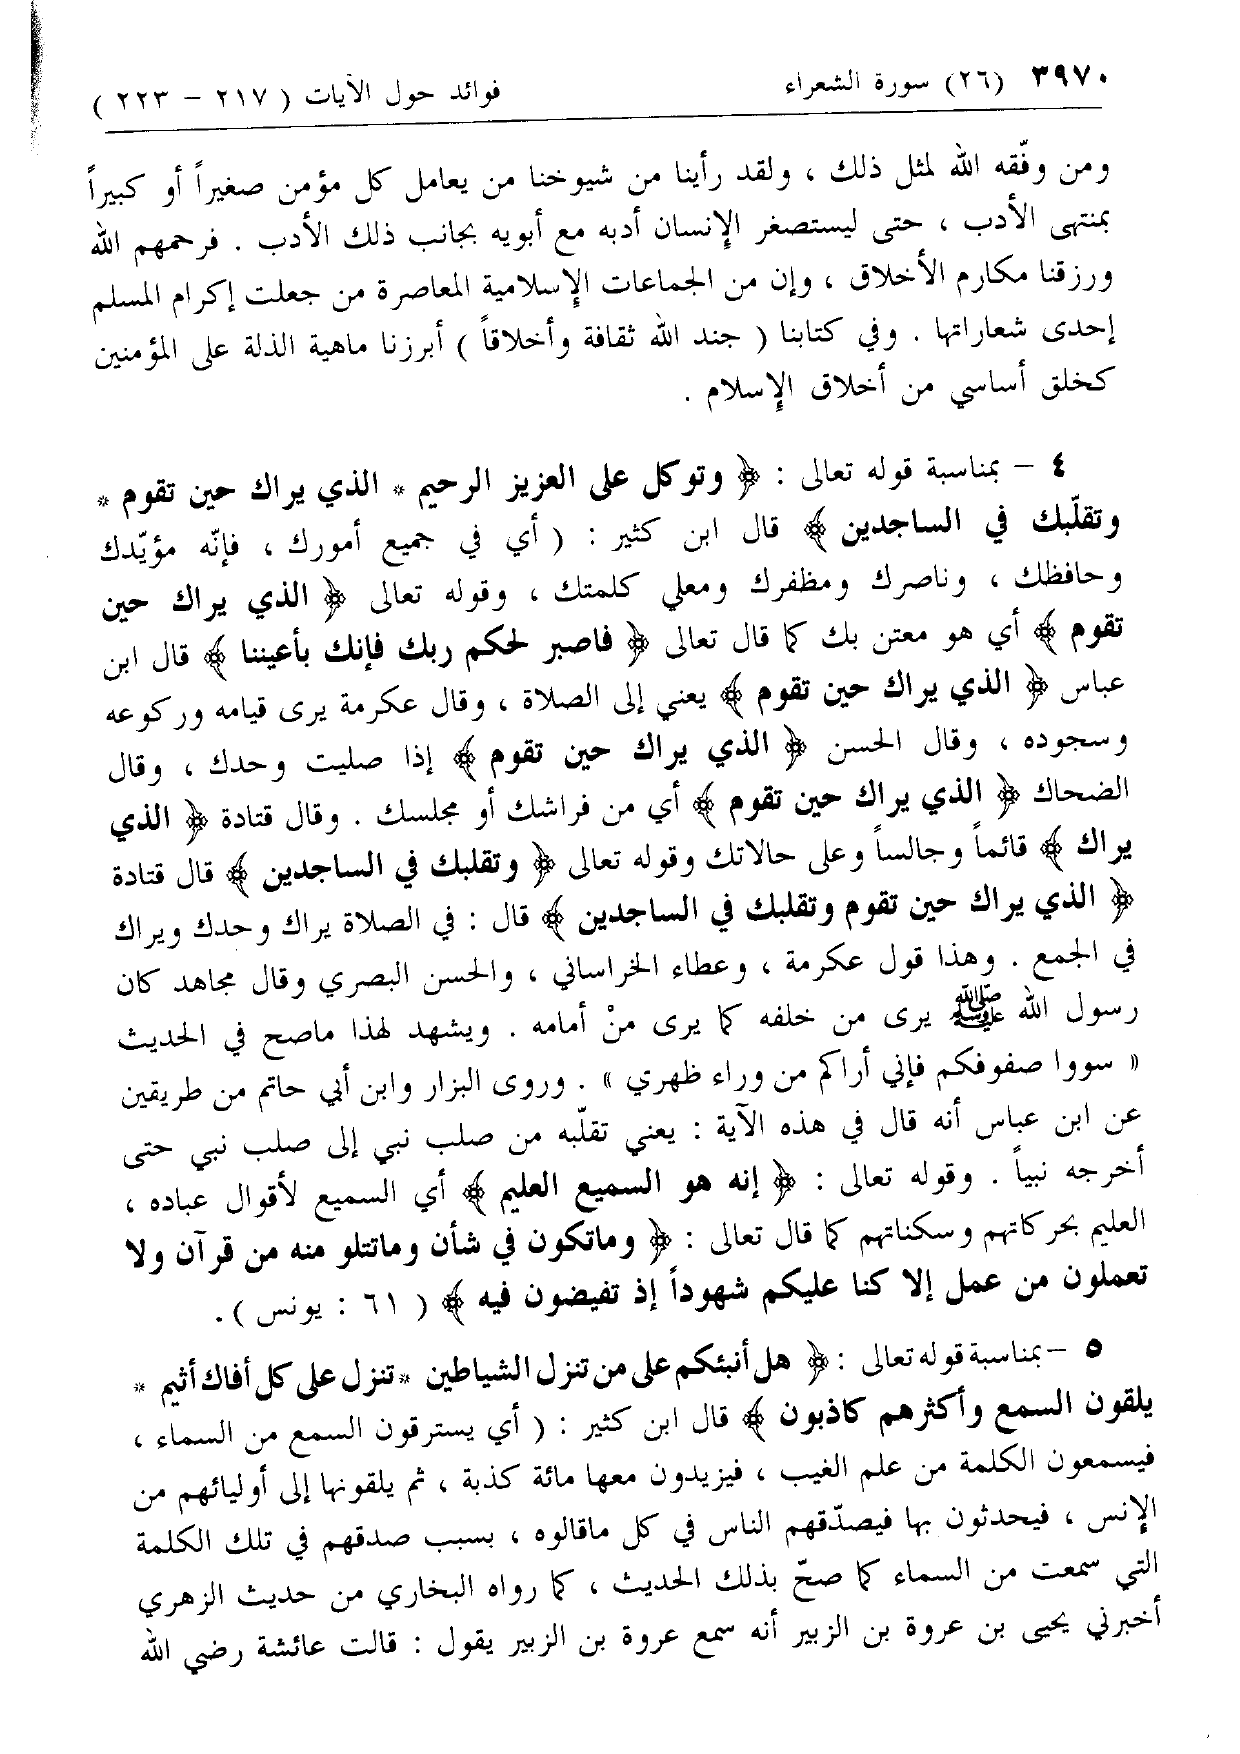 ٣٩٧٠ (٢٦) سورة الشعراء فوائد حول الآيات ( ٢١٧ – ٢٢٣ )
ومن وفّقه الله لمثل ذلك ، ولقد رأينا من شيوخنا من يعامل كل مؤمن صغيراً أو كبيراً
بمنتهى الأدب ، حتى ليستصغر الإنسان أدبه مع أبويه بجانب ذلك الأدب . فرحمهم الله
ورزقنا مكارم الأخلاق ، وإن من الجماعات الإسلامية المعاصرة من جعلت إكرام المسلم
إحدى شعاراتها . وفي كتابنا ( جند الله ثقافة وأخلاقاً ) أبرزنا ماهية الذلة على المؤمنين
كخلق أساسي من أخلاق الإسلام .
٤ – بمناسبة قوله تعالى : ﴿ وتوكل على العزيز الرحيم * الذي يراك حين تقوم *
وتقلّبك في الساجدين ﴾ قال ابن كثير : ( أي في جميع أمورك ، فإنّه مؤيّدك
وحافظك ، وناصرك ومظفرك ومعلي كلمتك ، وقوله تعالى ﴿ الذي يراك حين
تقوم ﴾ أي هو معتن بك كما قال تعالى ﴿ فاصبر لحكم ربك فإنك بأعيننا ﴾ قال ابن
عباس ﴿ الذي يراك حين تقوم ﴾ يعني إلى الصلاة ، وقال عكرمة يرى قيامه وركوعه
وسجوده ، وقال الحسن ﴿ الذي يراك حين تقوم ﴾ إذا صليت وحدك ، وقال
الضحاك ﴿ الذي يراك حين تقوم ﴾ أي من فراشك أو مجلسك . وقال قتادة ﴿ الذي
يراك ﴾ قائماً وجالساً وعلى حالاتك وقوله تعالى ﴿ وتقلبك في الساجدين ﴾ قال قتادة
﴿ الذي يراك حين تقوم وتقلبك في الساجدين ﴾ قال : في الصلاة يراك وحدك ويراك
في الجمع . وهذا قول عكرمة ، وعطاء الخراساني ، والحسن البصري وقال مجاهد كان
رسول الله ﷺ يرى من خلفه كما يرى منْ أمامه . ويشهد لهذا ماصح في الحديث
« سووا صفوفكم فإني أراكم من وراء ظهري » . وروى البزار وابن أبي حاتم من طريقين
عن ابن عباس أنه قال في هذه الآية : يعني تقلّبه من صلب نبي إلى صلب نبي حتى
أخرجه نبياً . وقوله تعالى : ﴿ إنه هو السميع العليم ﴾ أي السميع لأقوال عباده ،
العليم بحركاتهم وسكناتهم كما قال تعالى : ﴿ وماتكون في شأن وماتتلو منه من قرآن ولا
تعملون من عمل إلا كنا عليكم شهوداً إذ تفيضون فيه ﴾ ( ٦١ : يونس ) .
٥ – بمناسبة قوله تعالى : ﴿ هل أنبئكم على من تنزل الشياطين * تنزل على كل أفاك أثيم *
يلقون السمع وأكثرهم كاذبون ﴾ قال ابن كثير : ( أي يسترقون السمع من السماء ،
فيسمعون الكلمة من علم الغيب ، فيزيدون معها مائة كذبة ، ثم يلقونها إلى أوليائهم من
الإنس ، فيحدثون بها فيصدّقهم الناس في كل ماقالوه ، بسبب صدقهم في تلك الكلمة
التي سمعت من السماء كما صحّ بذلك الحديث ، كما رواه البخاري من حديث الزهري
أخبرني يحيى بن عروة بن الزبير أنه سمع عروة بن الزبير يقول : قالت عائشة رضي الله